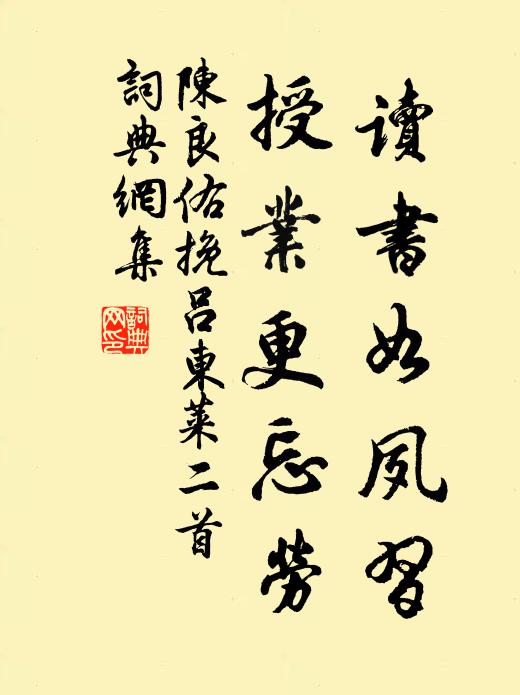 讀書如夙習
授業更忘勞
陳良佑挽呂東萊二首
詞典網集
詞典网印